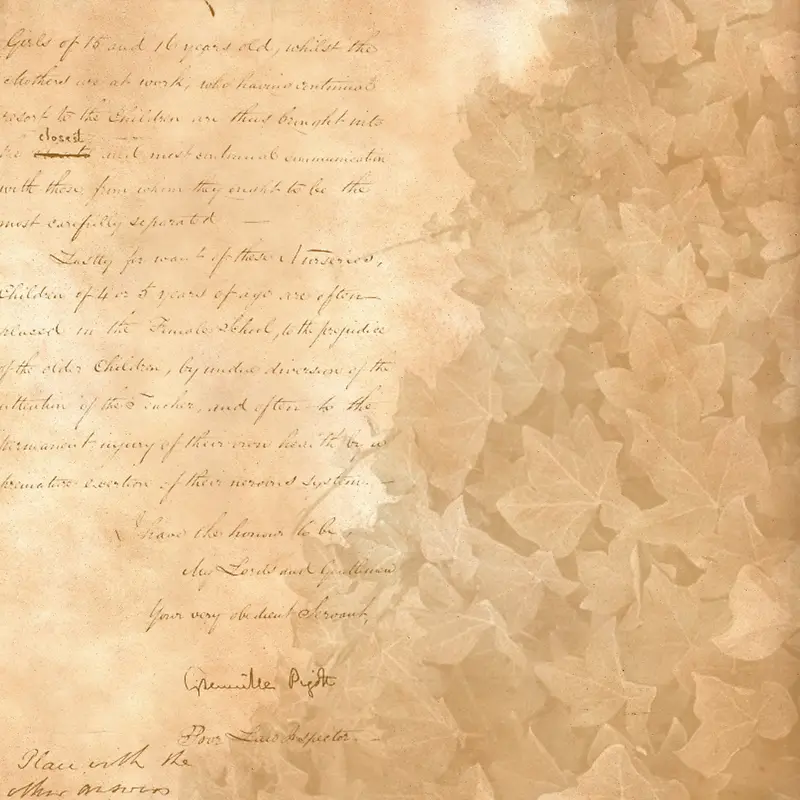 Girls of 15 and 16 years old, whilst the
Mothers are at work, who having continual
resort to the Children are thus brought into
closest
the and most continual communication
with those from whom they ought to be the
most carefully separated —
Lastly for want of these Nurseries,
Children of 4 or 5 years of age are often
placed in the Female School, to the prejudice
of the older Children, by undue diversion of the
attention of the Teacher, and often to the
permanent injury of their own health by a
premature exertion of their nervous system. —
I have the honour to be,
My Lords and Gentlemen
Your very obedient Servant,
Grenville Pigott
Poor Law Inspector. —
Place with the
other answers